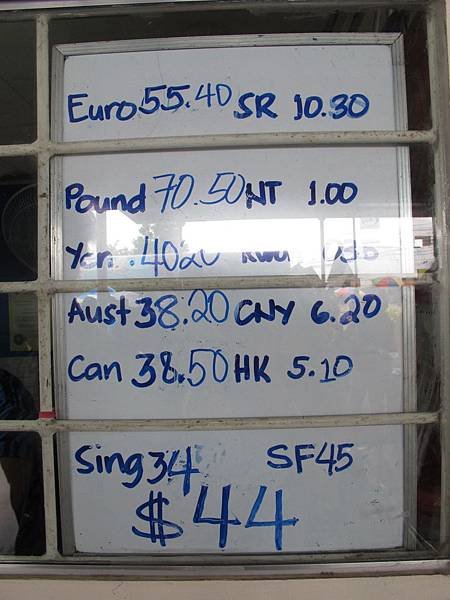 Euro 55.40 SR 10.30
Pound 70.50 NT 1.00
Yen .4020
Aust 38.20 CNY 6.20
Can 38.50 HK 5.10
Sing 34 SF 45
$44